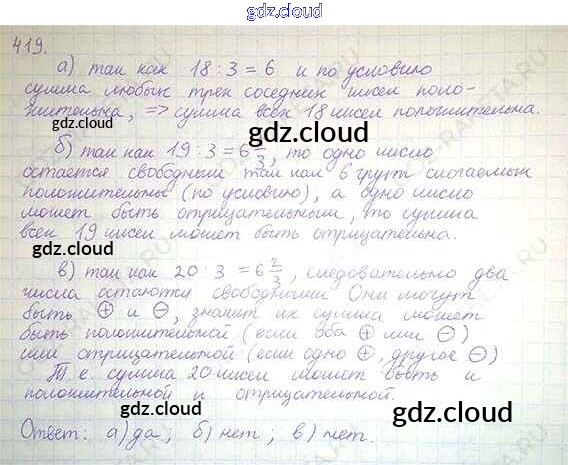 gdz.cloud
419.
а) так как 18 : 3 = 6 и по условию
сумма любых трех соседних чисел поло-
жительна, => сумма всех 18 чисел положительна.
gdz.cloud
б) так как 19 : 3 = 6 1/3, то одно число
остается свободным так как 6 групп слогаемых
gdz.cloud
положительны (по условию), а одно число
может быть отрицательным, то сумма
gdz.cloud
всех 19 чисел может быть отрицательна.
в) так как 20 : 3 = 6 2/3, следовательно два
числа остаются свободными Они могут
gdz.cloud gdz.cloud
быть ⊕ и ⊖, значит их сумма может
быть положительной (если оба ⊕ или ⊖)
или отрицательной (если одно ⊕, другое ⊖)
Т е. сумма 20 чисел может быть и
положительной и отрицательной.
gdz.cloud gdz.cloud
Ответ: а) да; б) нет; в) нет.
gdz.cloud